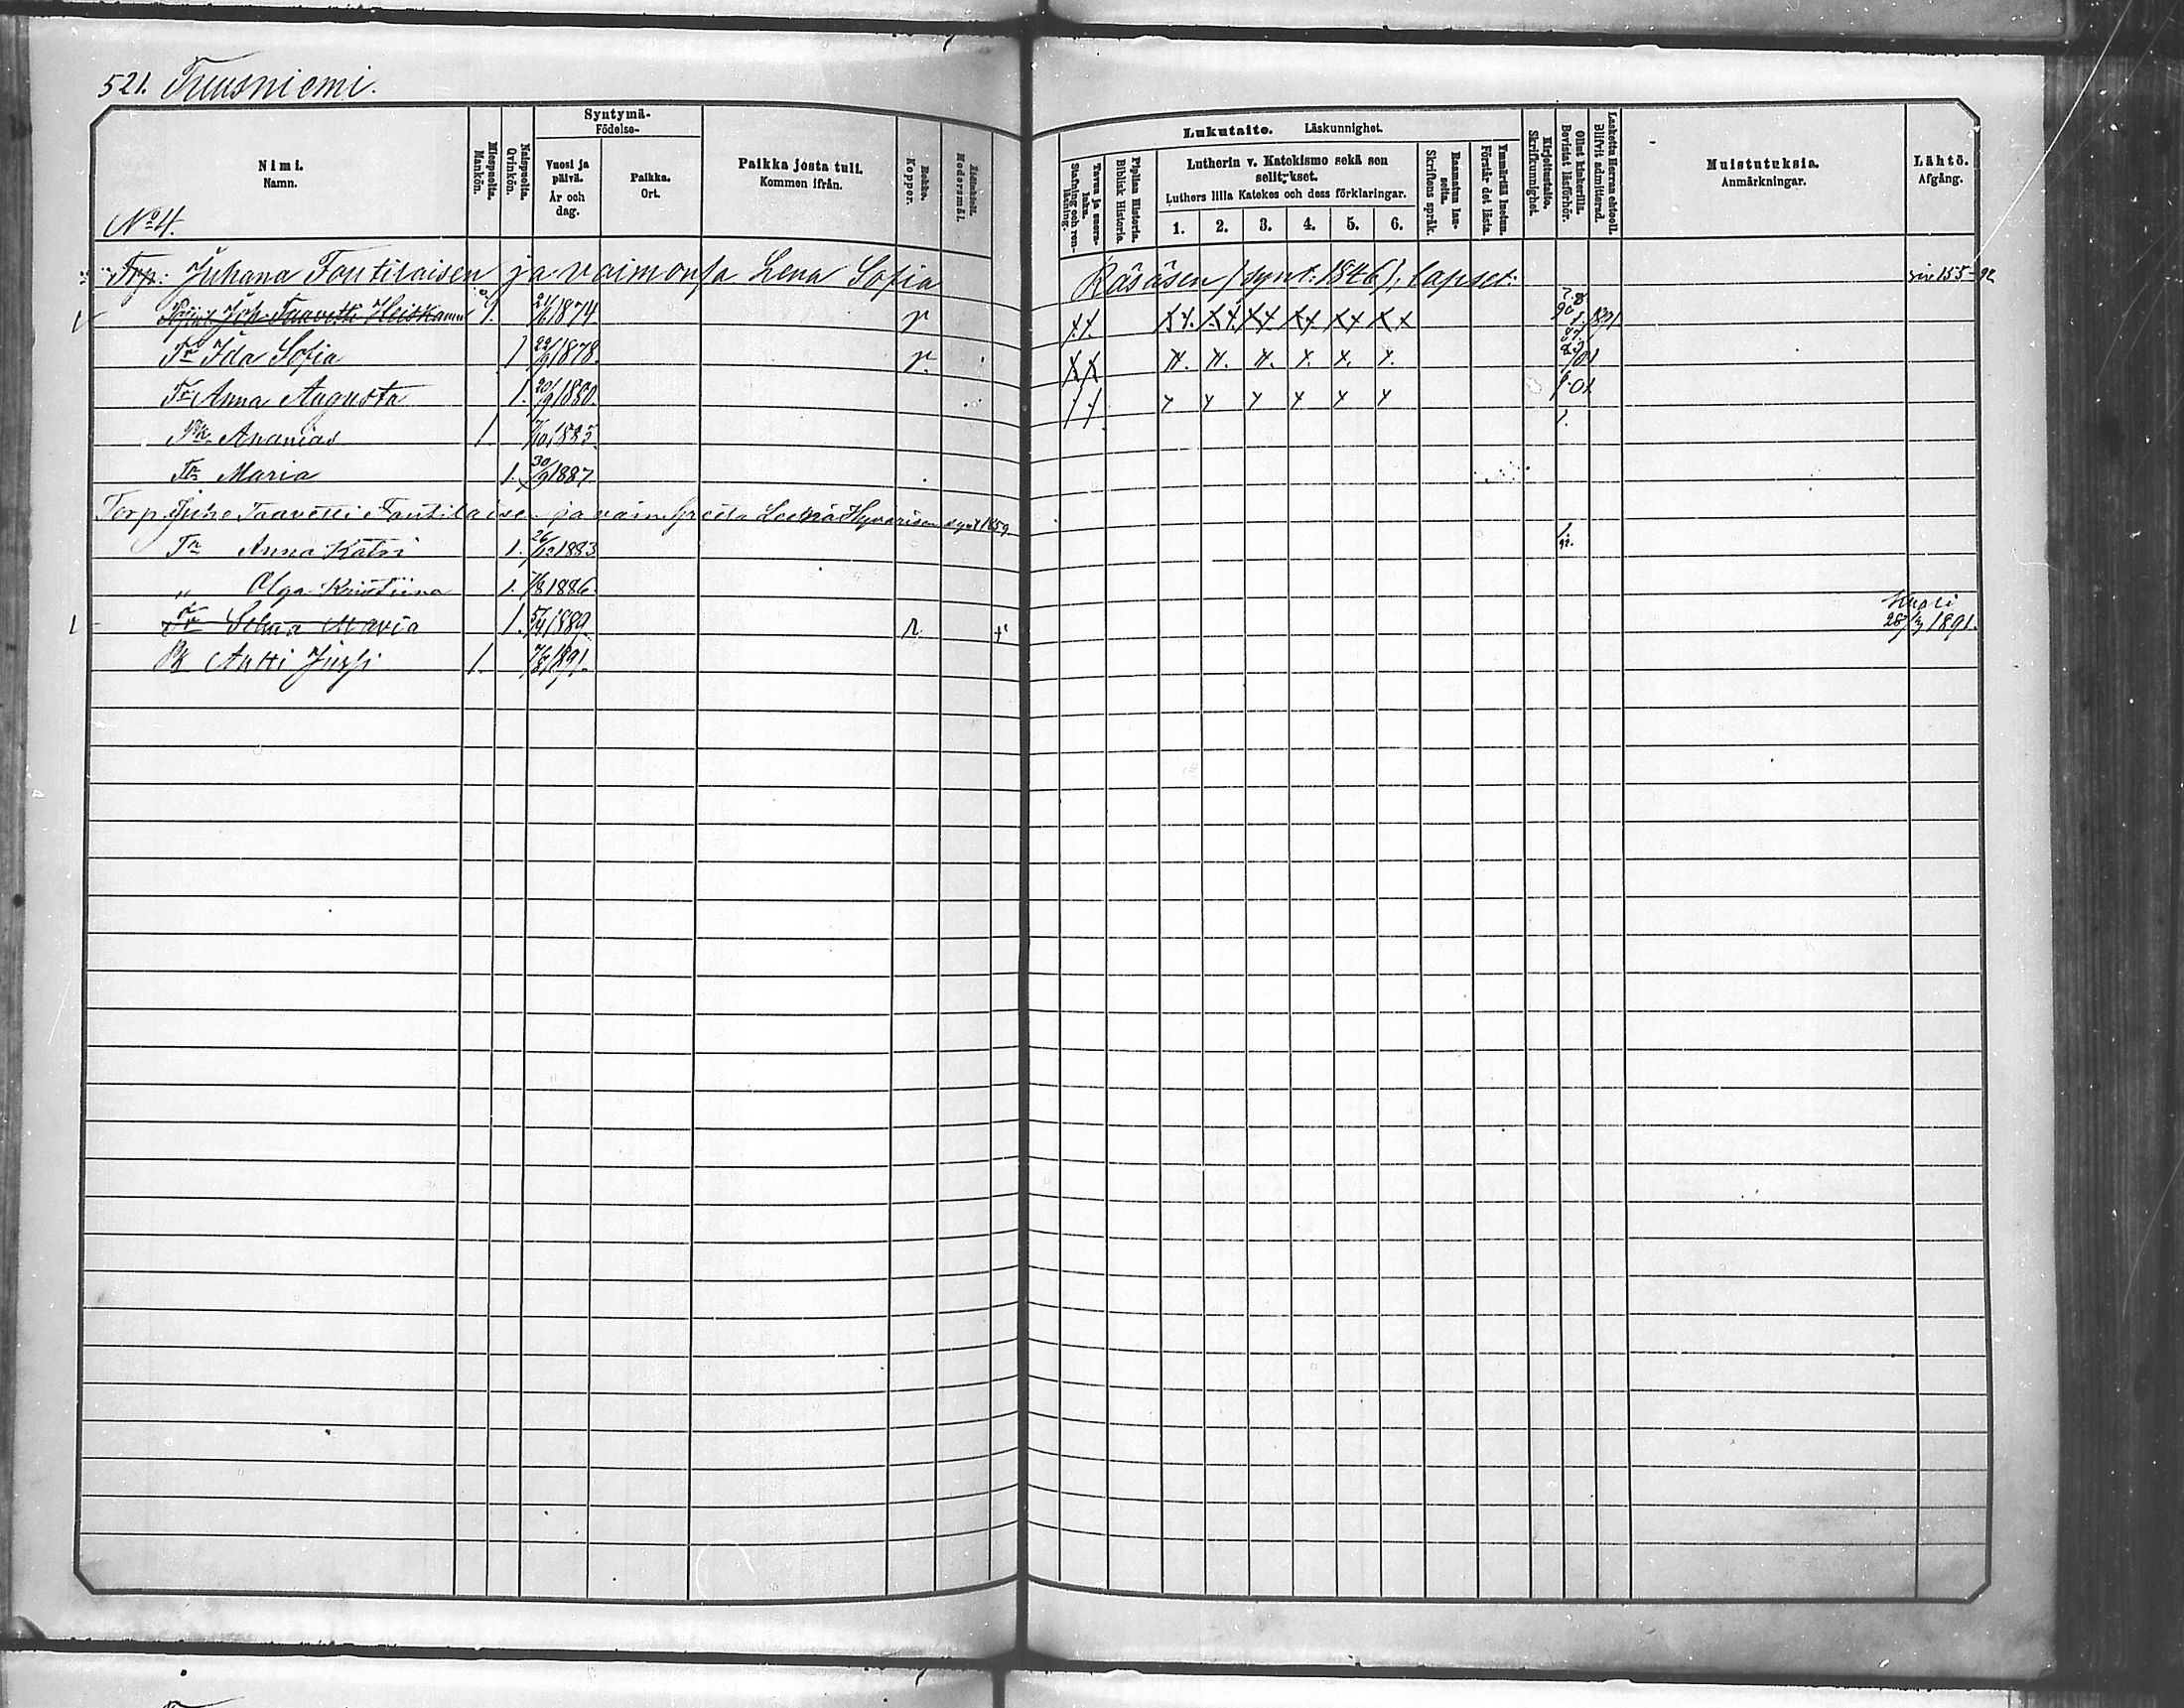 521. Tuusniemi.
Nimi. Namn.
Miespuolta. Mankön.
Naispuolta. Qvinkön.
Syntymä- Födelse-
Vuosi ja päivä. År och dag.
Paikka. Ort.
Paikka josta tuli. Kommen ifrån.
Rokko. Koppor.
Äidinkieli. Modersmål.
Lukutaito. Läskunnighet.
Tavuu ja suora- luku. Stafning och ren- läsning.
Piplian Historia. Biblisk Historie.
Lutherin v. Katekismo sekä sen selitykset.
Luthers lilla Katekes och dess förklaringar.
1. 2. 3. 4. 5. 6.
Raamatun lau- seita. Skriftens språk.
Ymmärtää luetun. Förstår det lästa.
Kirjoitustaito. Skrifkunnighet.
Ollut kinkerilla. Bevistat läsförhör.
Laskettu Herran ehtooll. Blifvit admitterad.
Muistutuksia. Anmärkningar.
Lähtö. Afgång.
No 4.
Torp. Juhana Tontilaisen ja vaimonsa Lena Sofia Räsäsen (synt: 1846), lapset: 155-92
Joh. Taavetti Heiskanen 1. 1874 r 1891
Tr Ida Sofia 1 22/9 1878. r.
Tr Anna Augusta 1. 20/9 1880.
Pk. Ananias 1 7/10 1885.
Tr Maria 1. 30/9 1887.
Torp. Juho Taavetti ja vaim Greeta Hyvärisen synt 1859
Tr Anna Katri 1. 26/12 1883
" Olga Kristiina 1. 7/8 1886.
Tr Selma Maria 1. 1889. r + kuoli 28/3 1891.
Pk Antti Jussi 1. 7/8 1891.